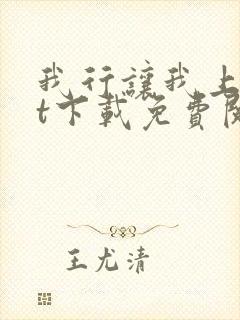 我行讓我上
t下載免費
王尤清